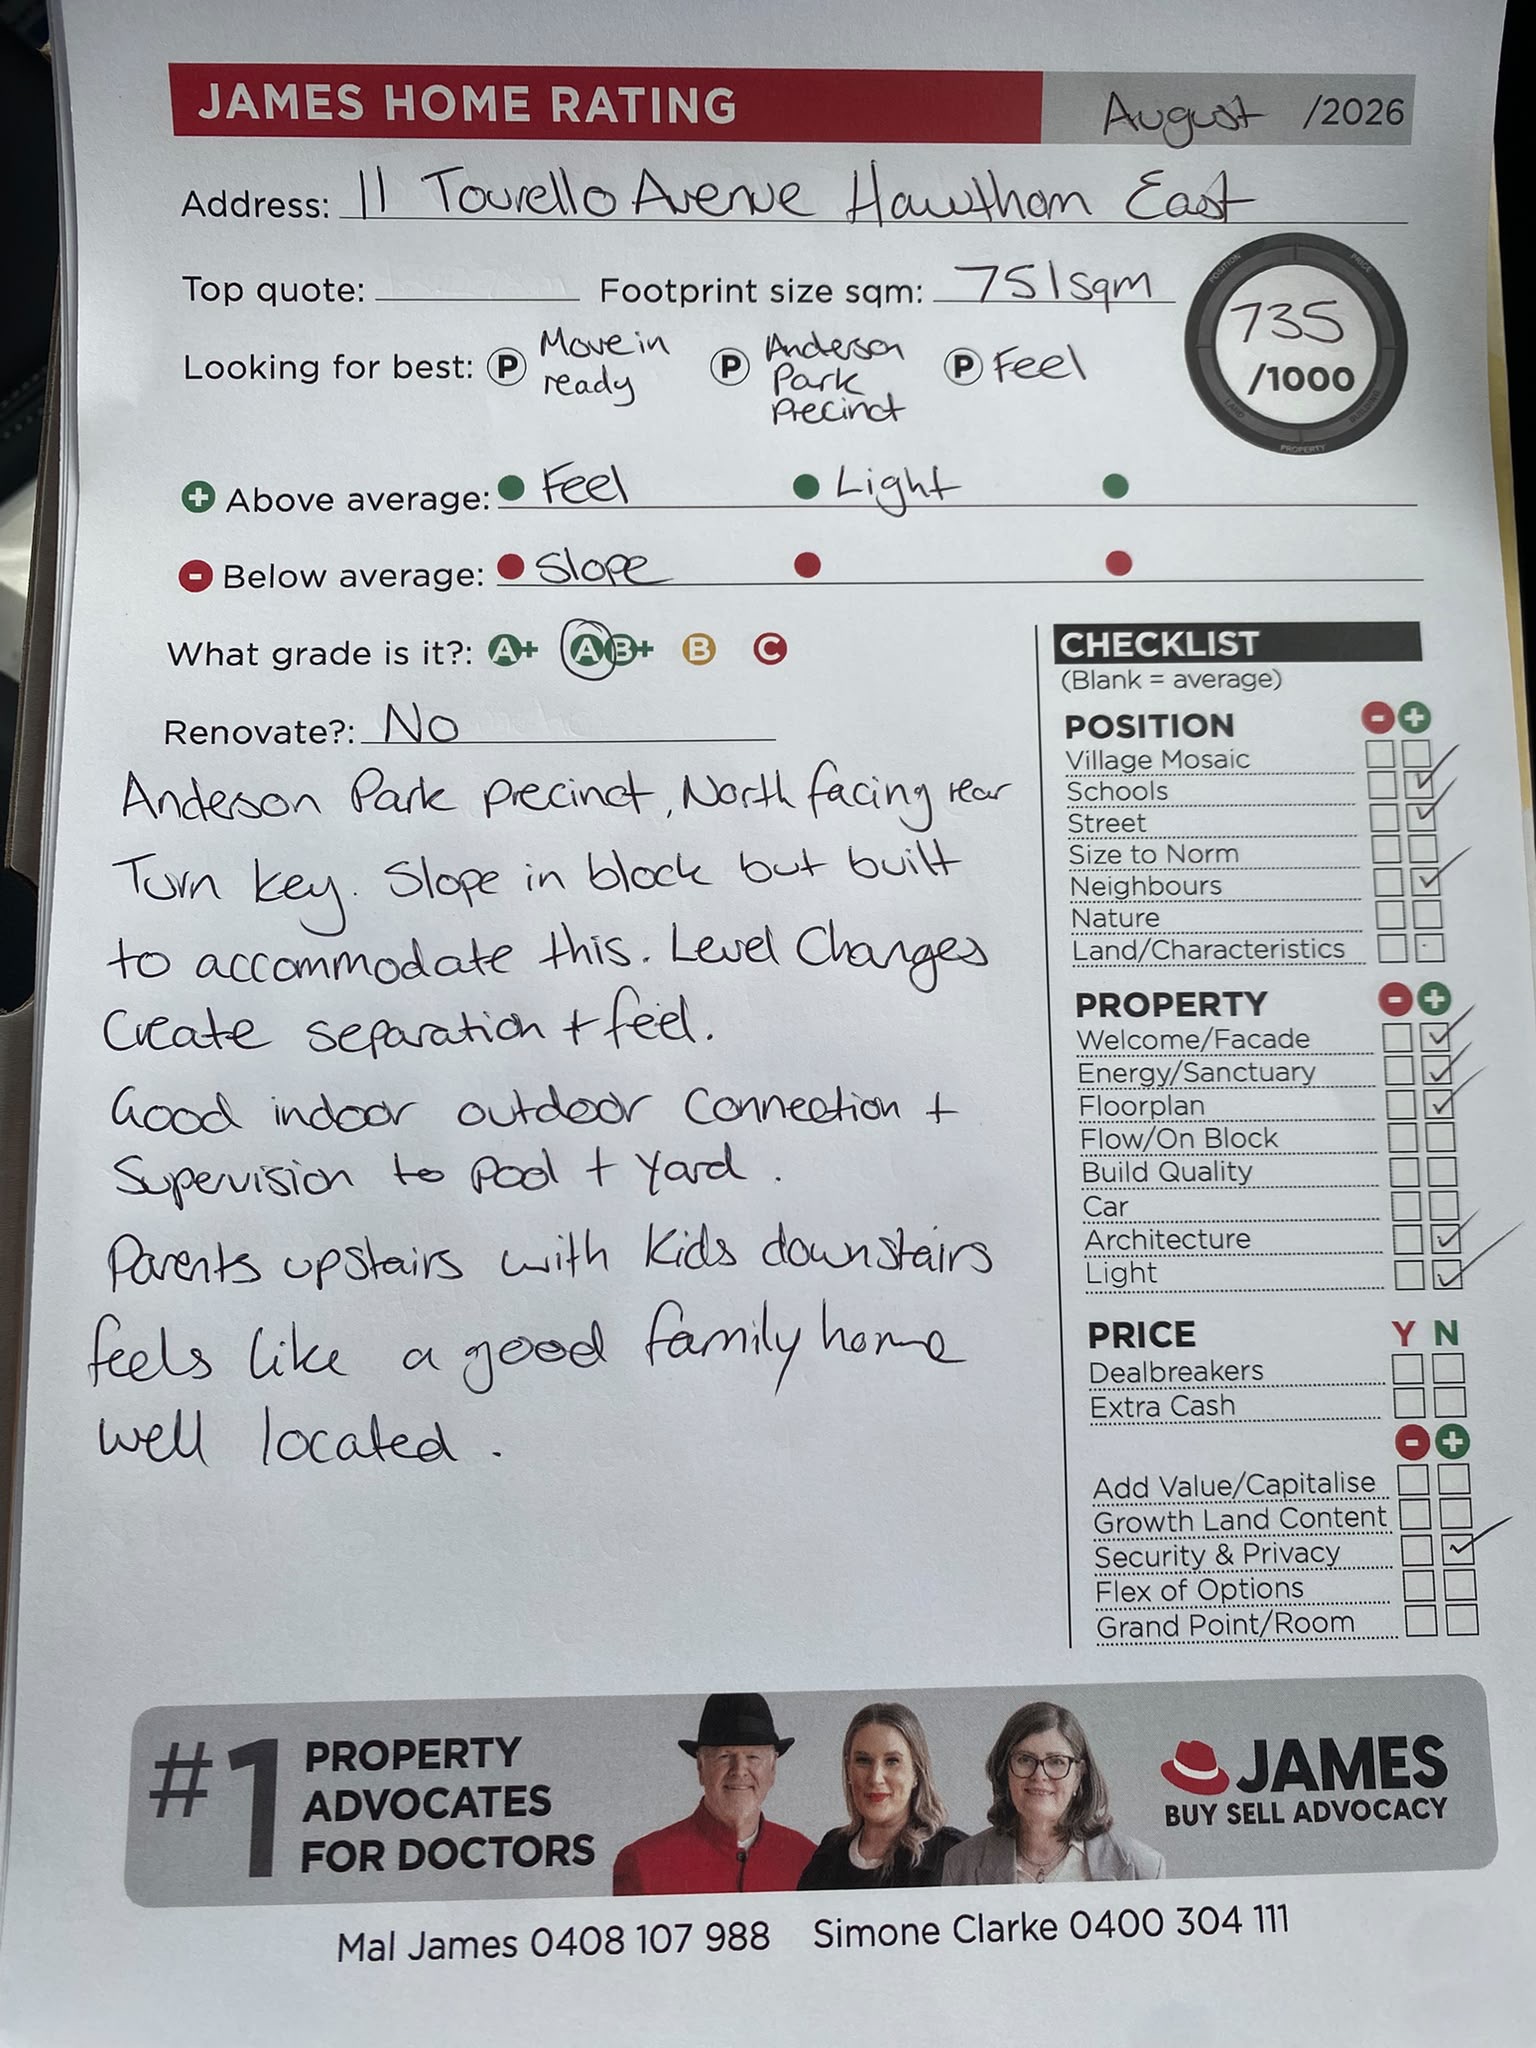 JAMES HOME RATING August /2026
Address: 11 Tourello Avenue Hawthorn East
Top quote: Footprint size sqm: 751sqm
POSITION PRICE BUILDING PROPERTY LAND
735
/1000
Looking for best: P Move in ready P Anderson Park Precinct P Feel
+ Above average: Feel Light
- Below average: Slope
What grade is it?: A+ A B+ B C
Renovate?: No
Anderson Park precinct, North facing rear
Turn key. Slope in block but built
to accommodate this. Level Changes
Create separation + feel.
Good indoor outdoor Connection +
Supervision to Pool + Yard.
Parents upstairs with Kids downstairs
feels like a good family home
well located.
CHECKLIST
(Blank = average)
POSITION - +
Village Mosaic
Schools
Street
Size to Norm
Neighbours
Nature
Land/Characteristics
PROPERTY - +
Welcome/Facade
Energy/Sanctuary
Floorplan
Flow/On Block
Build Quality
Car
Architecture
Light
PRICE Y N
Dealbreakers
Extra Cash
- +
Add Value/Capitalise
Growth Land Content
Security & Privacy
Flex of Options
Grand Point/Room
#1 PROPERTY
ADVOCATES
FOR DOCTORS
JAMES
BUY SELL ADVOCACY
Mal James 0408 107 988 Simone Clarke 0400 304 111